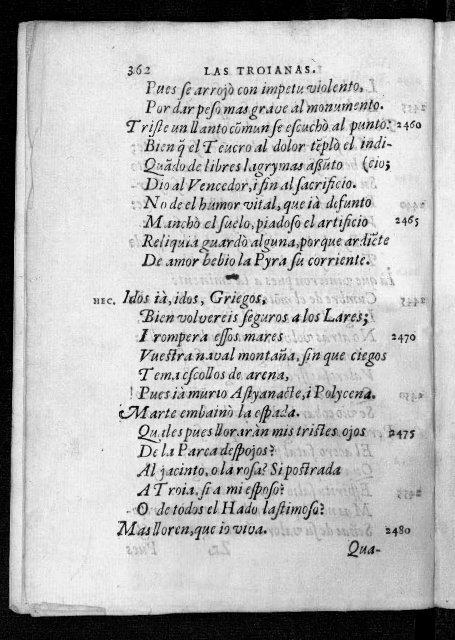 362 LAS TROIANAS.
Pues se arrojò con impetu violento,
Por dar peso mas grave al monumento.
Triste un llanto cõmun se escuchò al punto: 2460
Bien q̃ el Teucro al dolor tẽplò el indi-
Quãdo de libres lagrymas assũto (cio;
Dio al Vencedor, i fin al sacrificio.
No de el humor vital, que ià defunto
Manchò el suelo, piadoso el artificio 2465
Reliquia guardò alguna, porque ardiẽte
De amor bebio la Pyra su corriente.
HEC. Idos ià, idos, Griegos,
Bien volvereis seguros a los Lares;
I romperà essos mares 2470
Vuestra naval montaña, sin que ciegos
Tema escollos de arena,
Pues ià murio Astyanacte, i Polycena.
I Marte embainò la espada.
Quales pues lloraràn mis tristes ojos 2475
De la Parca despojos?
Al jacinto, o la rosa? Si postrada
A Troia, si a mi esposo?
O de todos el Hado lastimoso?
Mas lloren, que io viva. 2480
Qua-